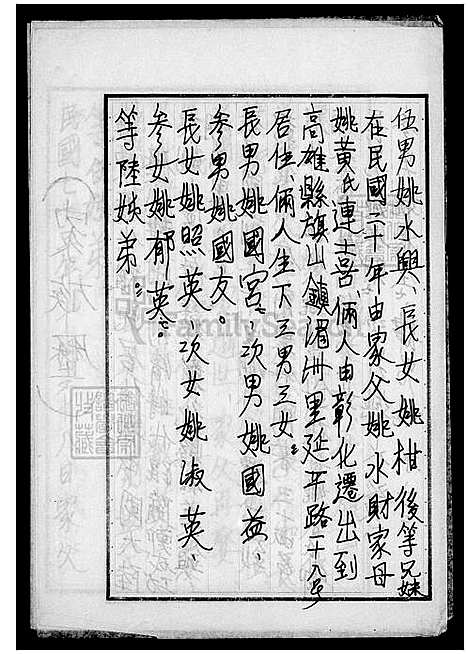 伍男姚水興、長女姚柑後等兄妹
在民國二十年由家父姚水財家母
姚黃氏連喜俩人由彰化遷出到
高雄縣旗山鎮湄洲里延平路一十八号
居住、俩人生下三男三女。
長男姚國宮、次男姚國益、
參男姚國友。
長女姚照英、次女姚淑英、
參女姚郁英。
等陸姊弟。